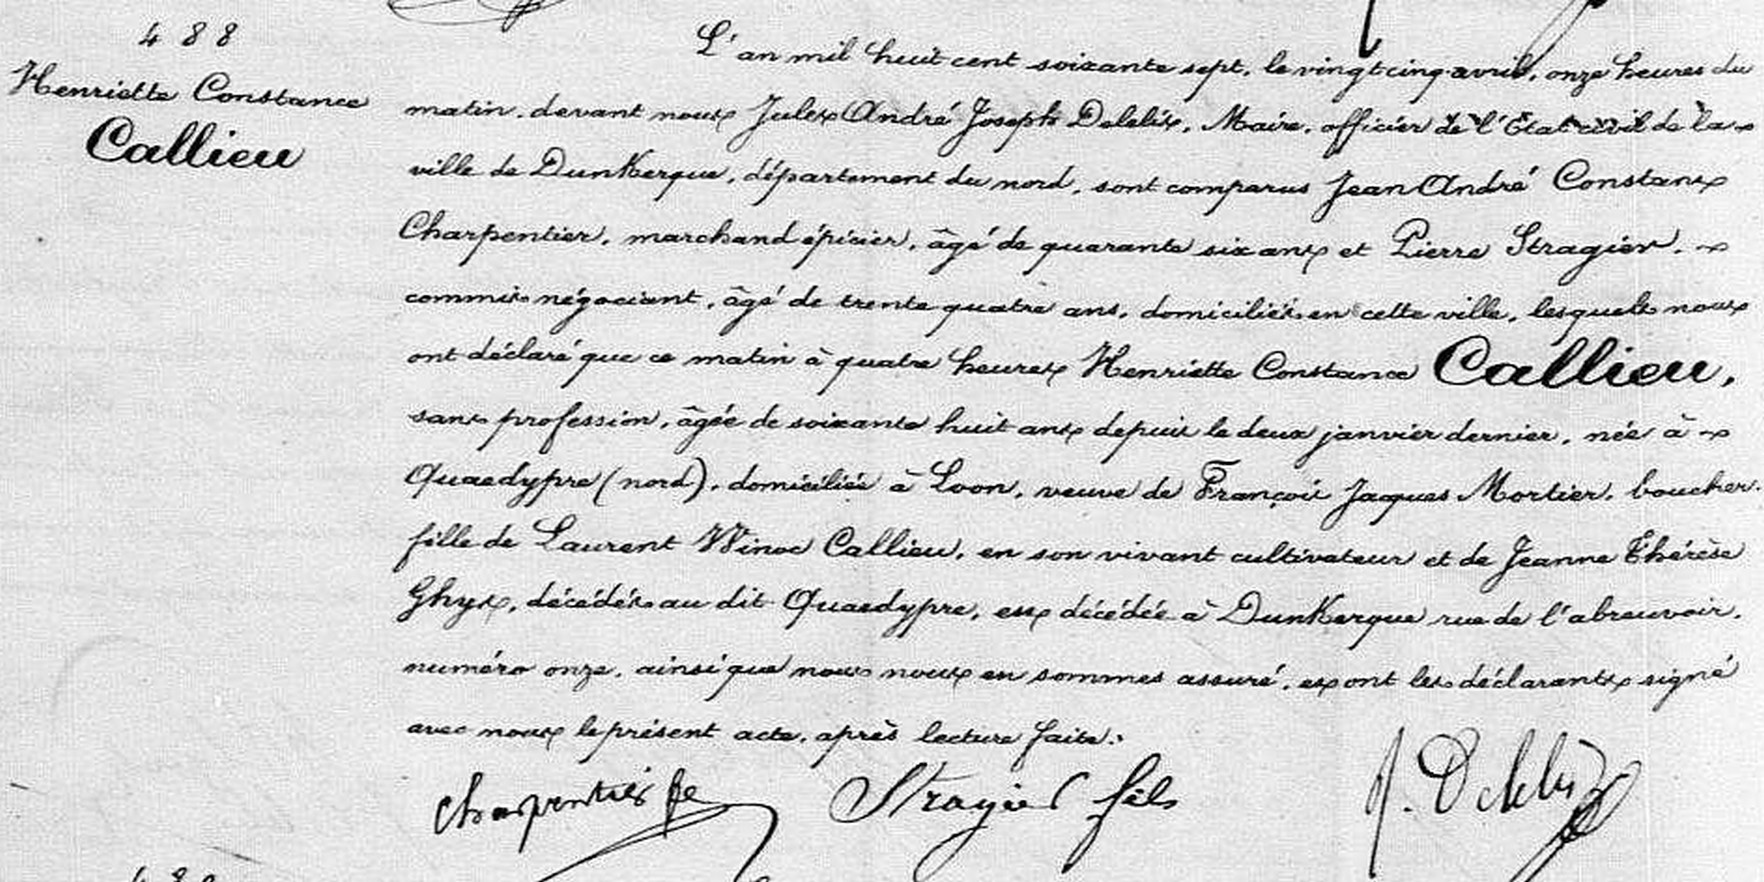 488
Henriette Constance
Callieu
L'an mil huit cent soixante sept, le vingt cinq avril, onze heures du
matin, devant nous Jules André Joseph Delelis, Maire, officier de l'Etat civil de la
ville de Dunkerque, département du nord, sont comparus Jean André Constant
Charpentier, marchand épicier, âgé de quarante six ans et Pierre Stragier,
commis négociant, âgé de trente quatre ans, domiciliés en cette ville, lesquels nous
ont déclaré que ce matin à quatre heures Henriette Constance Callieu,
sans profession, âgée de soixante huit ans depuis le deux janvier dernier, née à
Quaedypre (nord), domiciliée à Loon, veuve de François Jaques Mortier, boucher,
fille de Laurent Winoc Callieu, en son vivant cultivateur et de Jeanne Thérèse
Ghys, décédés au dit Quaedypre, est décédée à Dunkerque rue de l'abreuvoir,
numéro onze, ainsi que nous nous en sommes assuré, et ont les déclarants signé
avec nous le présent acte, après lecture faite.
Charpentier Stragier fils J. Delelis